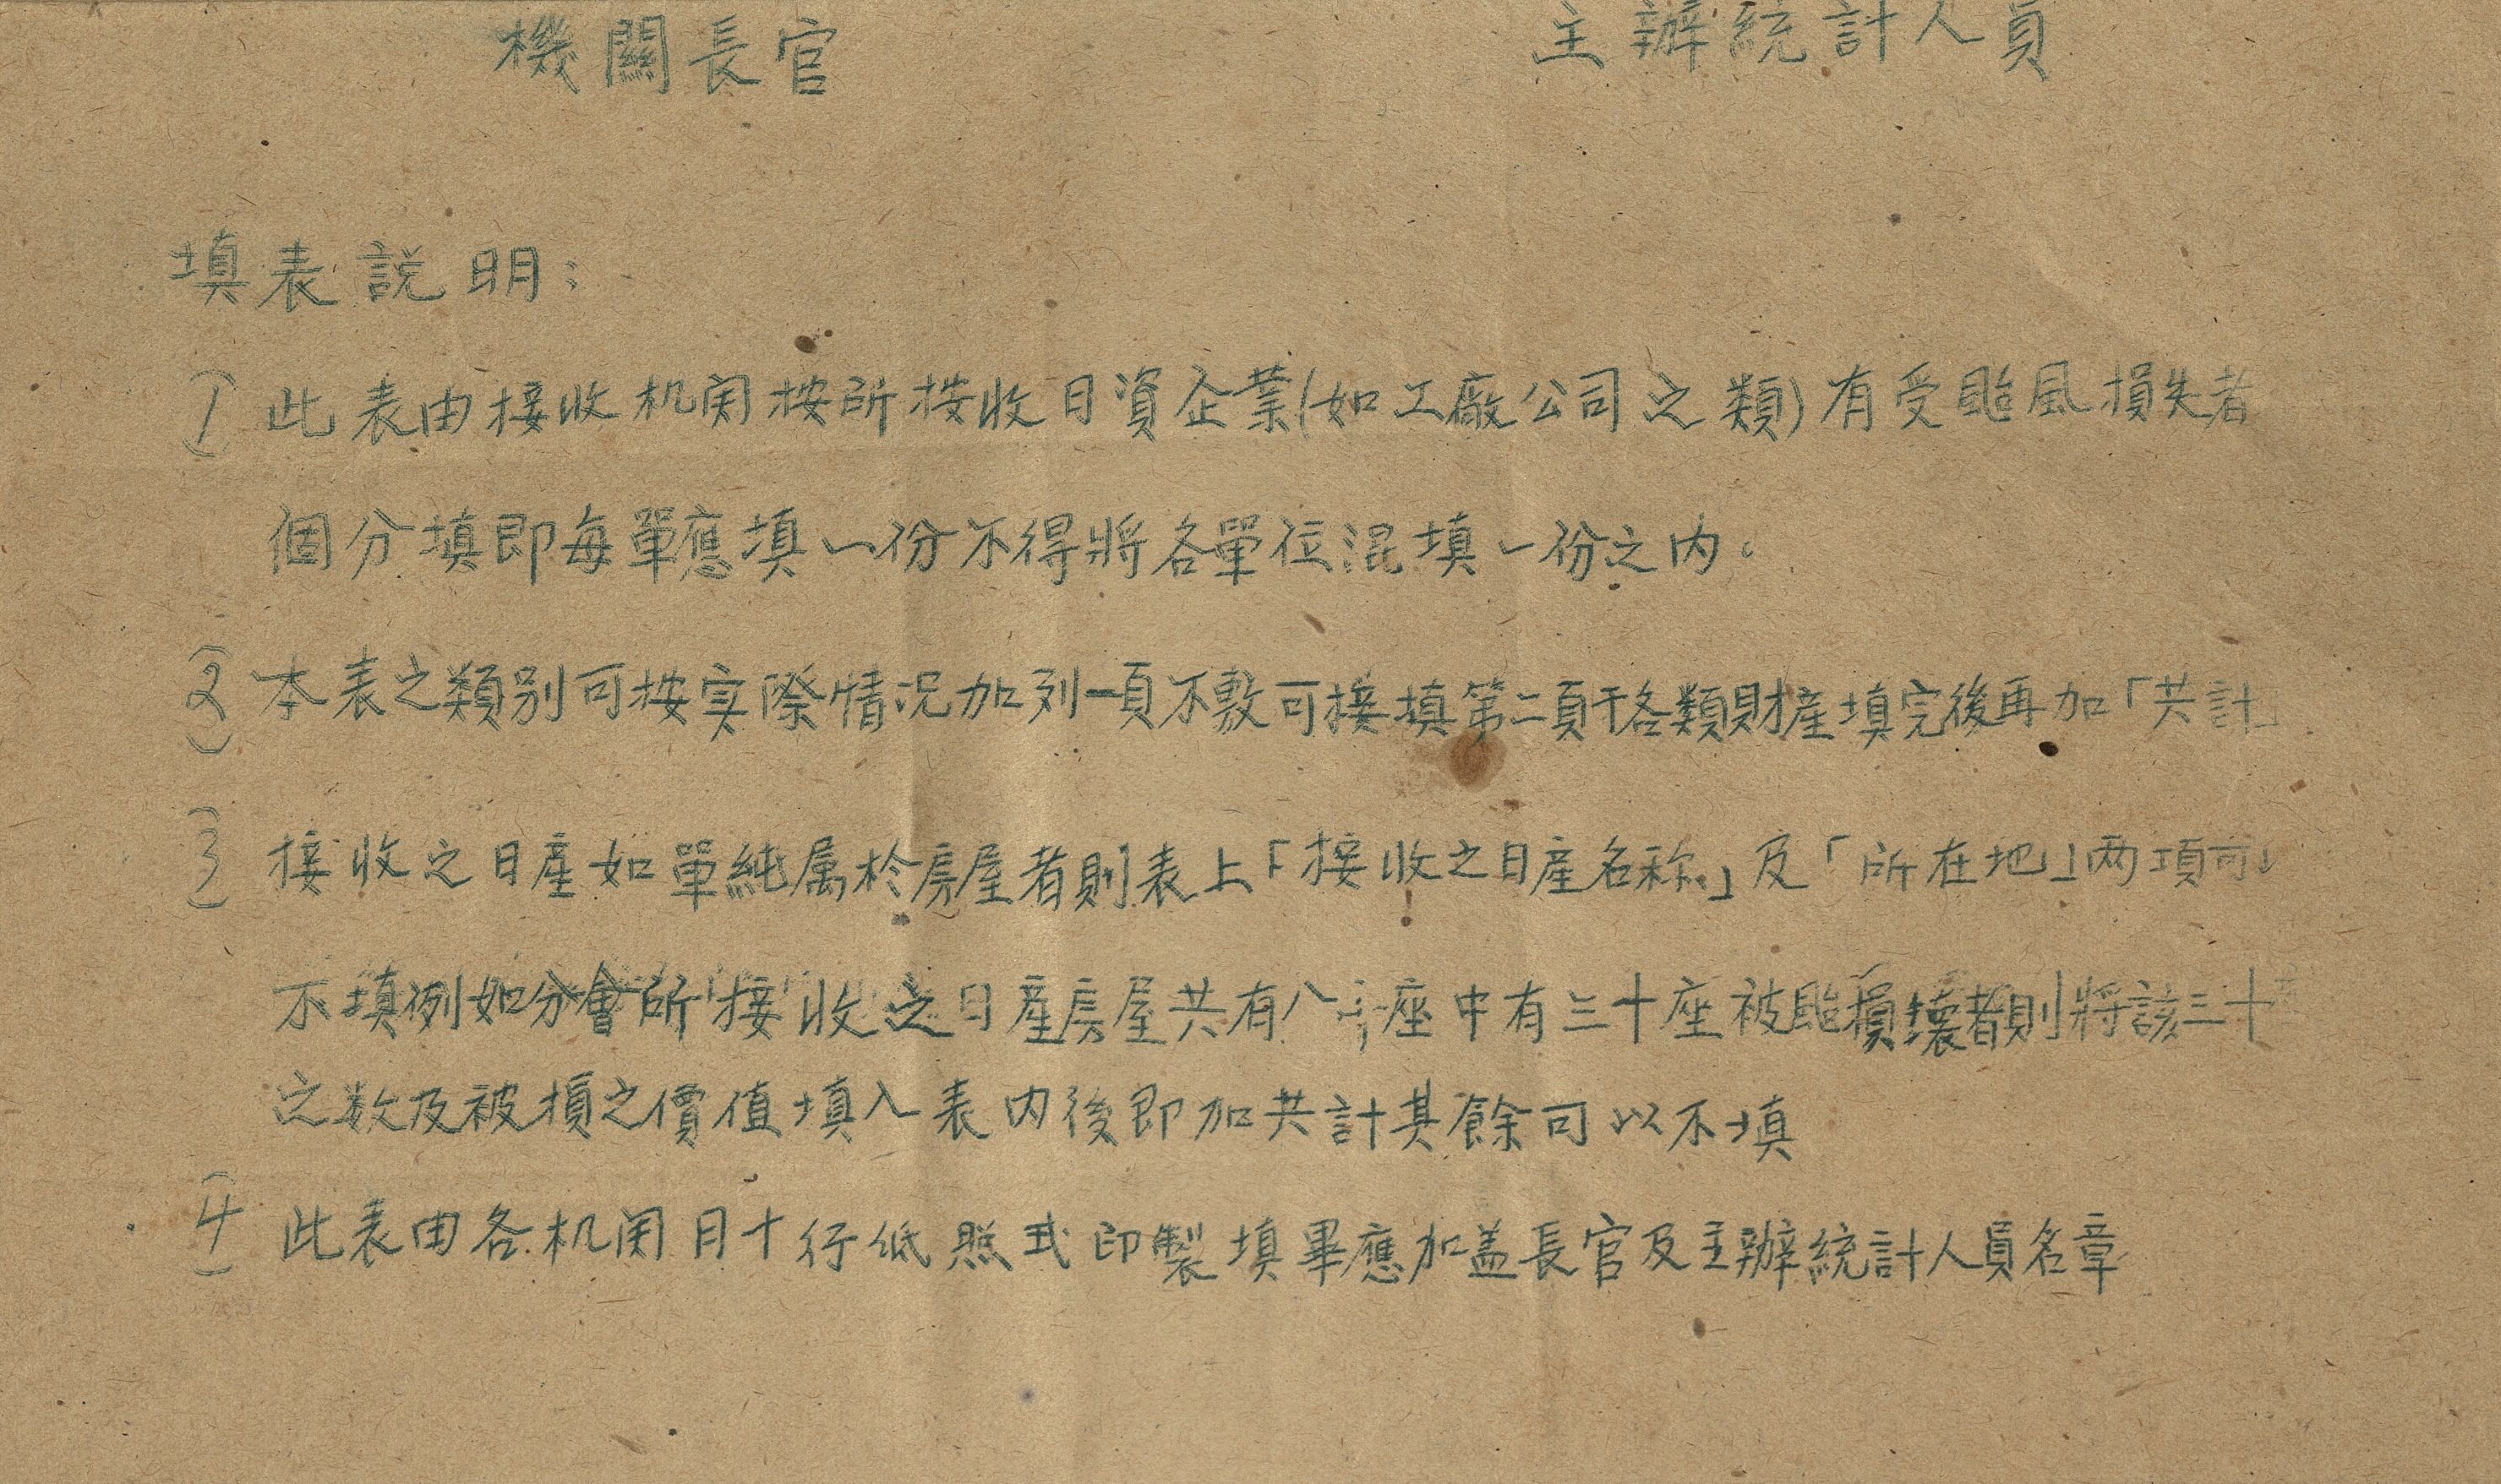 機關長官　主辦統計人員
填表説明：
(1) 此表由接收机関按所接收日資企業(如工廠公司之類)有受颱風損失者
個分填即每單應填一份不得將各單位混填一份之内。
(2) 本表之類別可按实際情况加列一頁不敷可接填第二頁于各類財產填完後再加「共計」
(3) 接收之日產如單純属於房屋者則表上「接收之日產名称」及「所在地」两項可
不填例如分會所接收之日產房屋共有八十座中有三十座被颱損壞者則將該三十
之数及被損之價值填入表内後即加共計其餘可以不填
(4) 此表由各机関用十行紙照式印製填畢應加盖長官及主辦統計人員名章